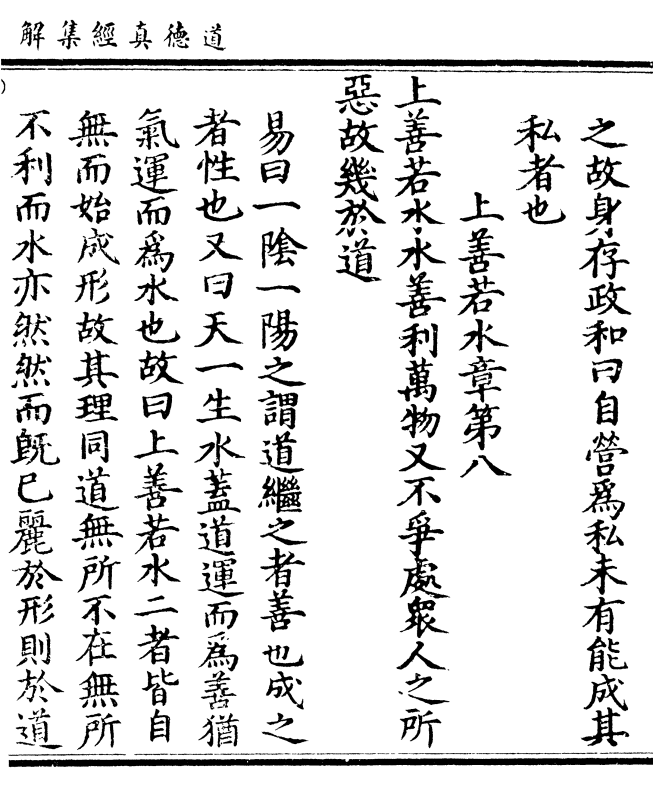 道德真經集解
之故身存政和曰自營為私未有能成其
私者也
上善若水章第八
上善若水水善利萬物又不爭處眾人之所
惡故幾於道
易曰一陰一陽之謂道繼之者善也成之
者性也又曰天一生水蓋道運而為善猶
氣運而為水也故曰上善若水二者皆自
無而始成形故其理同道無所不在無所
不利而水亦然然而既已麗於形則於道